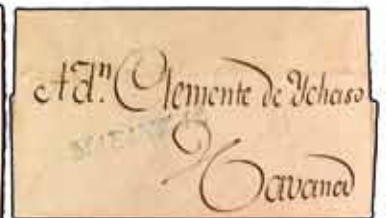 A dn. Clemente de Ychaso
Havana